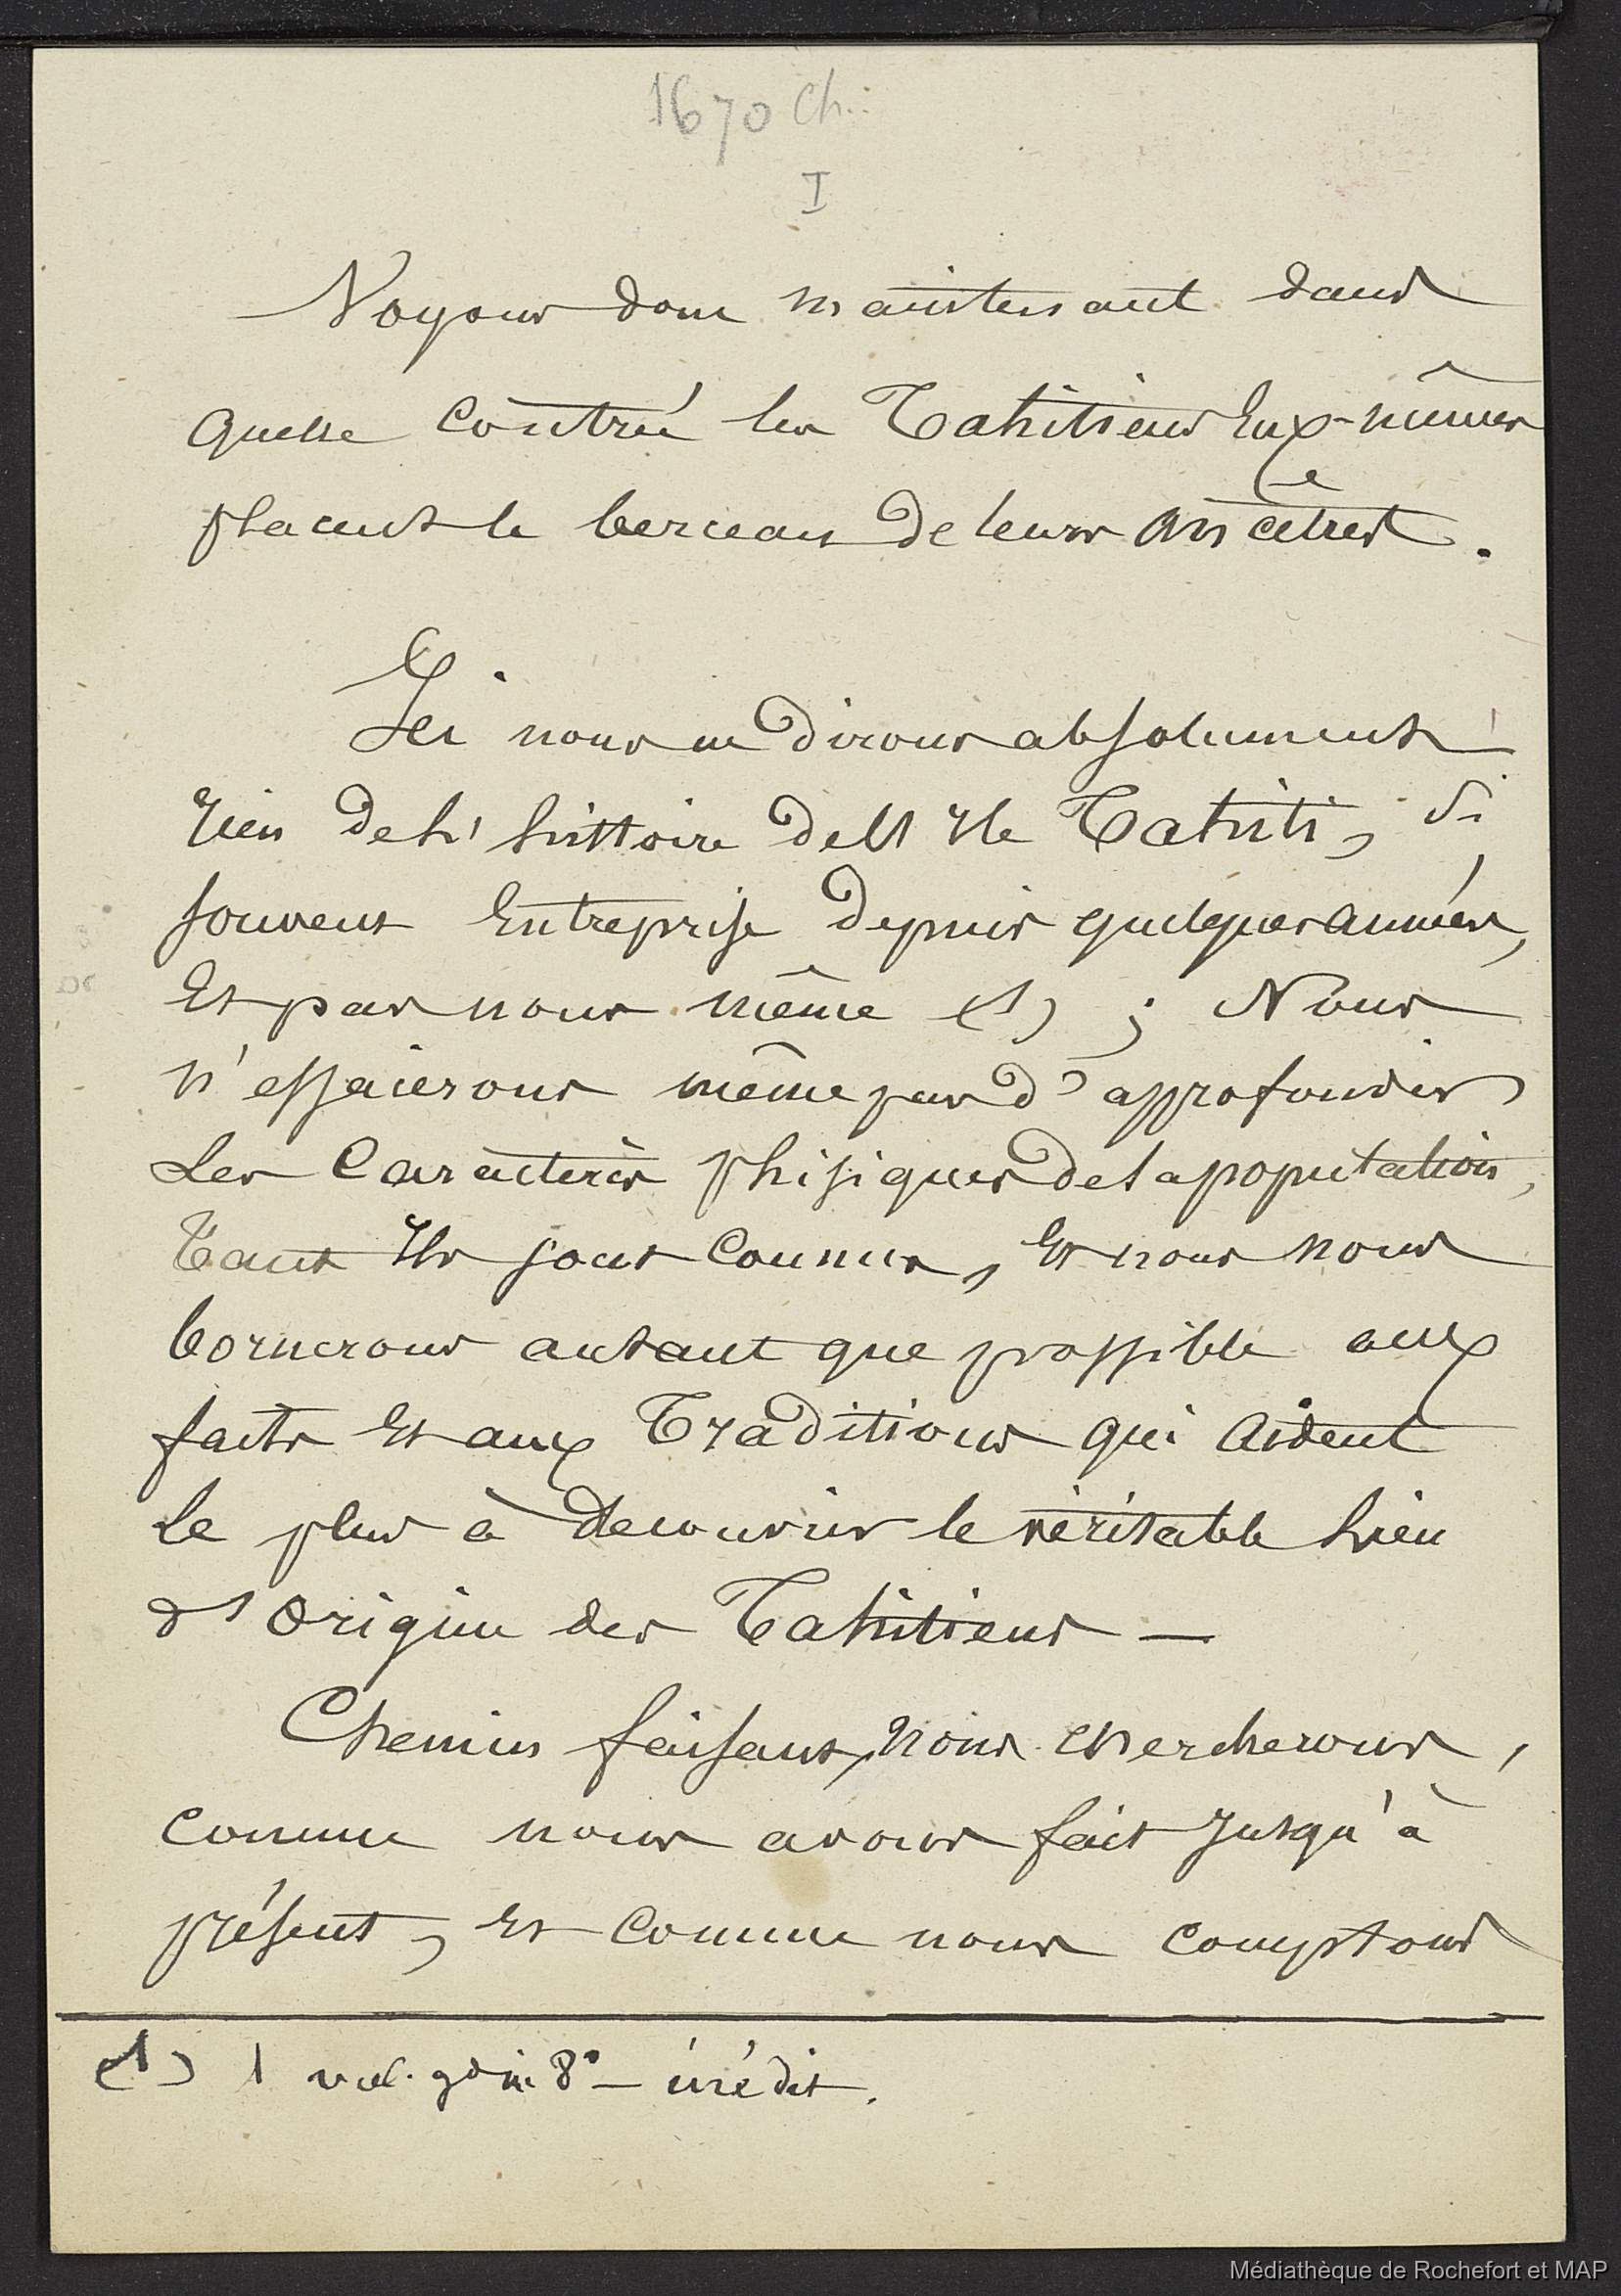 1670 Ch.
I
Voyons donc maintenant dans
quelle contrée les Tahitiens Eux-mêmes
placent le berceau de leurs Ancêtres.
Ici nous ne dirons absolument
rien de l'histoire de l'Ile Tahiti, si
souvent Entreprise depuis quelques années,
Et par nous même (1) ; Nous
n'essaierons même pas d'approfondir
Les Caractères phisiques de la population,
Tant Ils sont Connus, Et nous nous
bornerons autant que possible aux
faits Et aux Traditions qui Aident
Le plus à decouvrir le véritable Lieu
d'Origine des Tahitiens —
Chemin faisant, Nous chercherons,
comme nous avons fait Jusqu'à
présent, Et Comme nous comptons
(1) 1 vol. gd in 8° — inédit.
Médiathèque de Rochefort et MAP